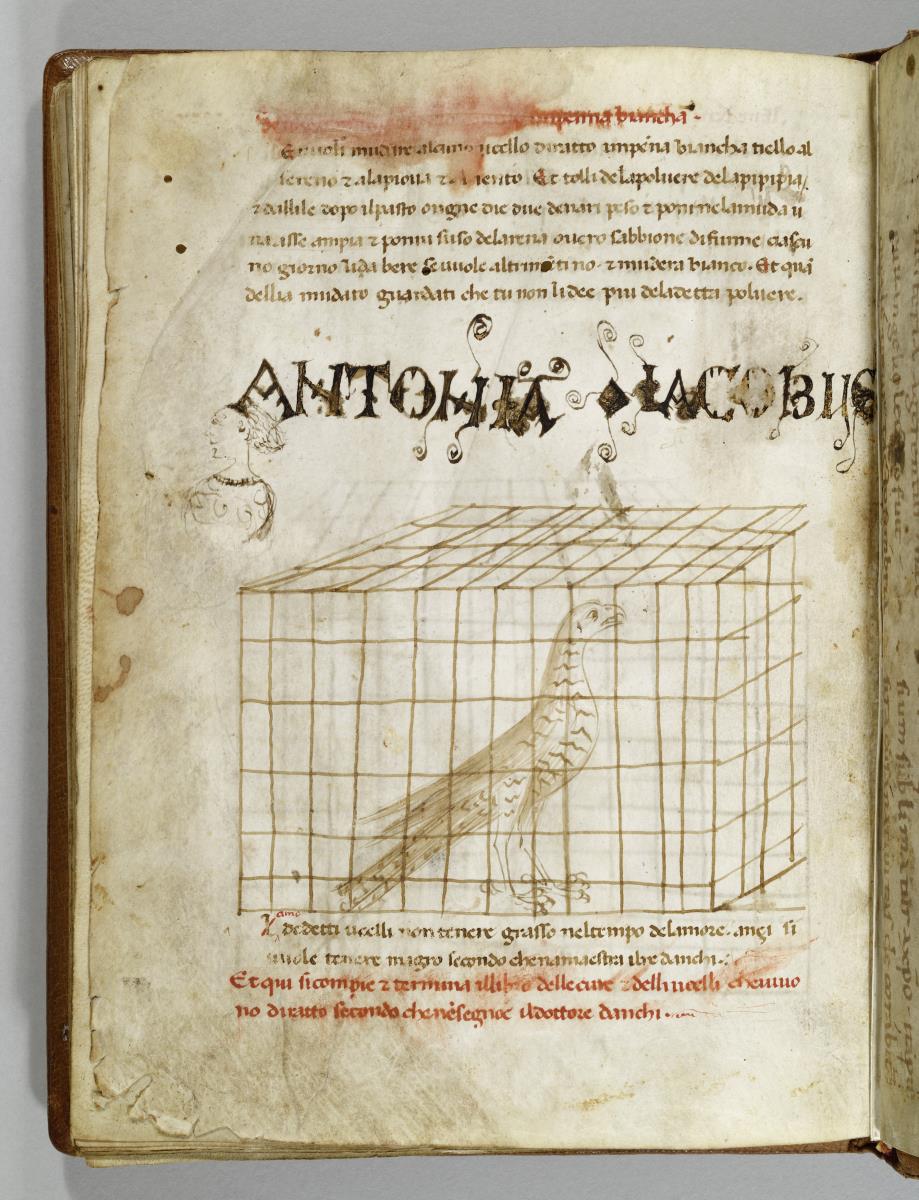 inpenna biancha ·
Et vuoli mudare alcuno ucello diratto inpēna biancha tiello al
sereno ⁊ alapiova ⁊ vento Et tolli delapoluere delapipipia
⁊ dallile dopo ilpasto ongne die due denari peso ⁊ poni nelamuda u
na asse ampia ⁊ ponui suso delarena overo sabbione di fiume ciascu
no giorno li da bere se vuole altrim̄ti no · ⁊ mudera bianco · Et quā
dellia mudato guardati che tu non li dee piu deladetta poluere ·
ANTONIA IACOBUS
dedetti ucelli non tenere grasso neltempo delamore · anzi si
vuole tenere magro secondo chenamaestra ilre danchi ·
Et qui sicompie ⁊ termina illibro dellecure ⁊ delli ucelli cheuiuo
no diratto secondo chenēsegnoe ildottore danchi ·